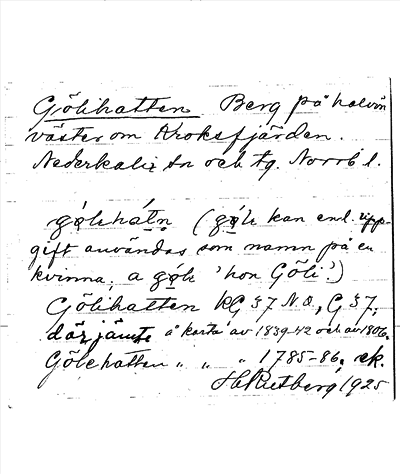 Gölihatten Berg på halvön
väster om Kroksfjärden.
Nederkalix sn och tg. Norrb l.
gø̀lihátn (gø̀li kan enl. upp-
gift användas som namn på en
kvinna; a gø̀li 'hon Göli'.)
Gölihatten kG 37 N.O., G 37;
därjämte å karta av 1839-42 och av 1806.
Gölehatten " " " 1785-86, ek.
1925